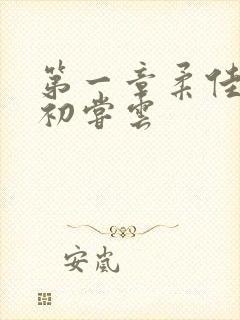 第一章柔佳
初尝云
安岚